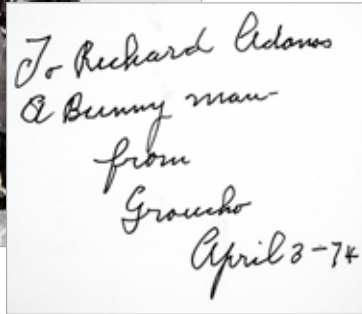 To Richard Adams
A Bunny man
from
Groucho
April 3-74